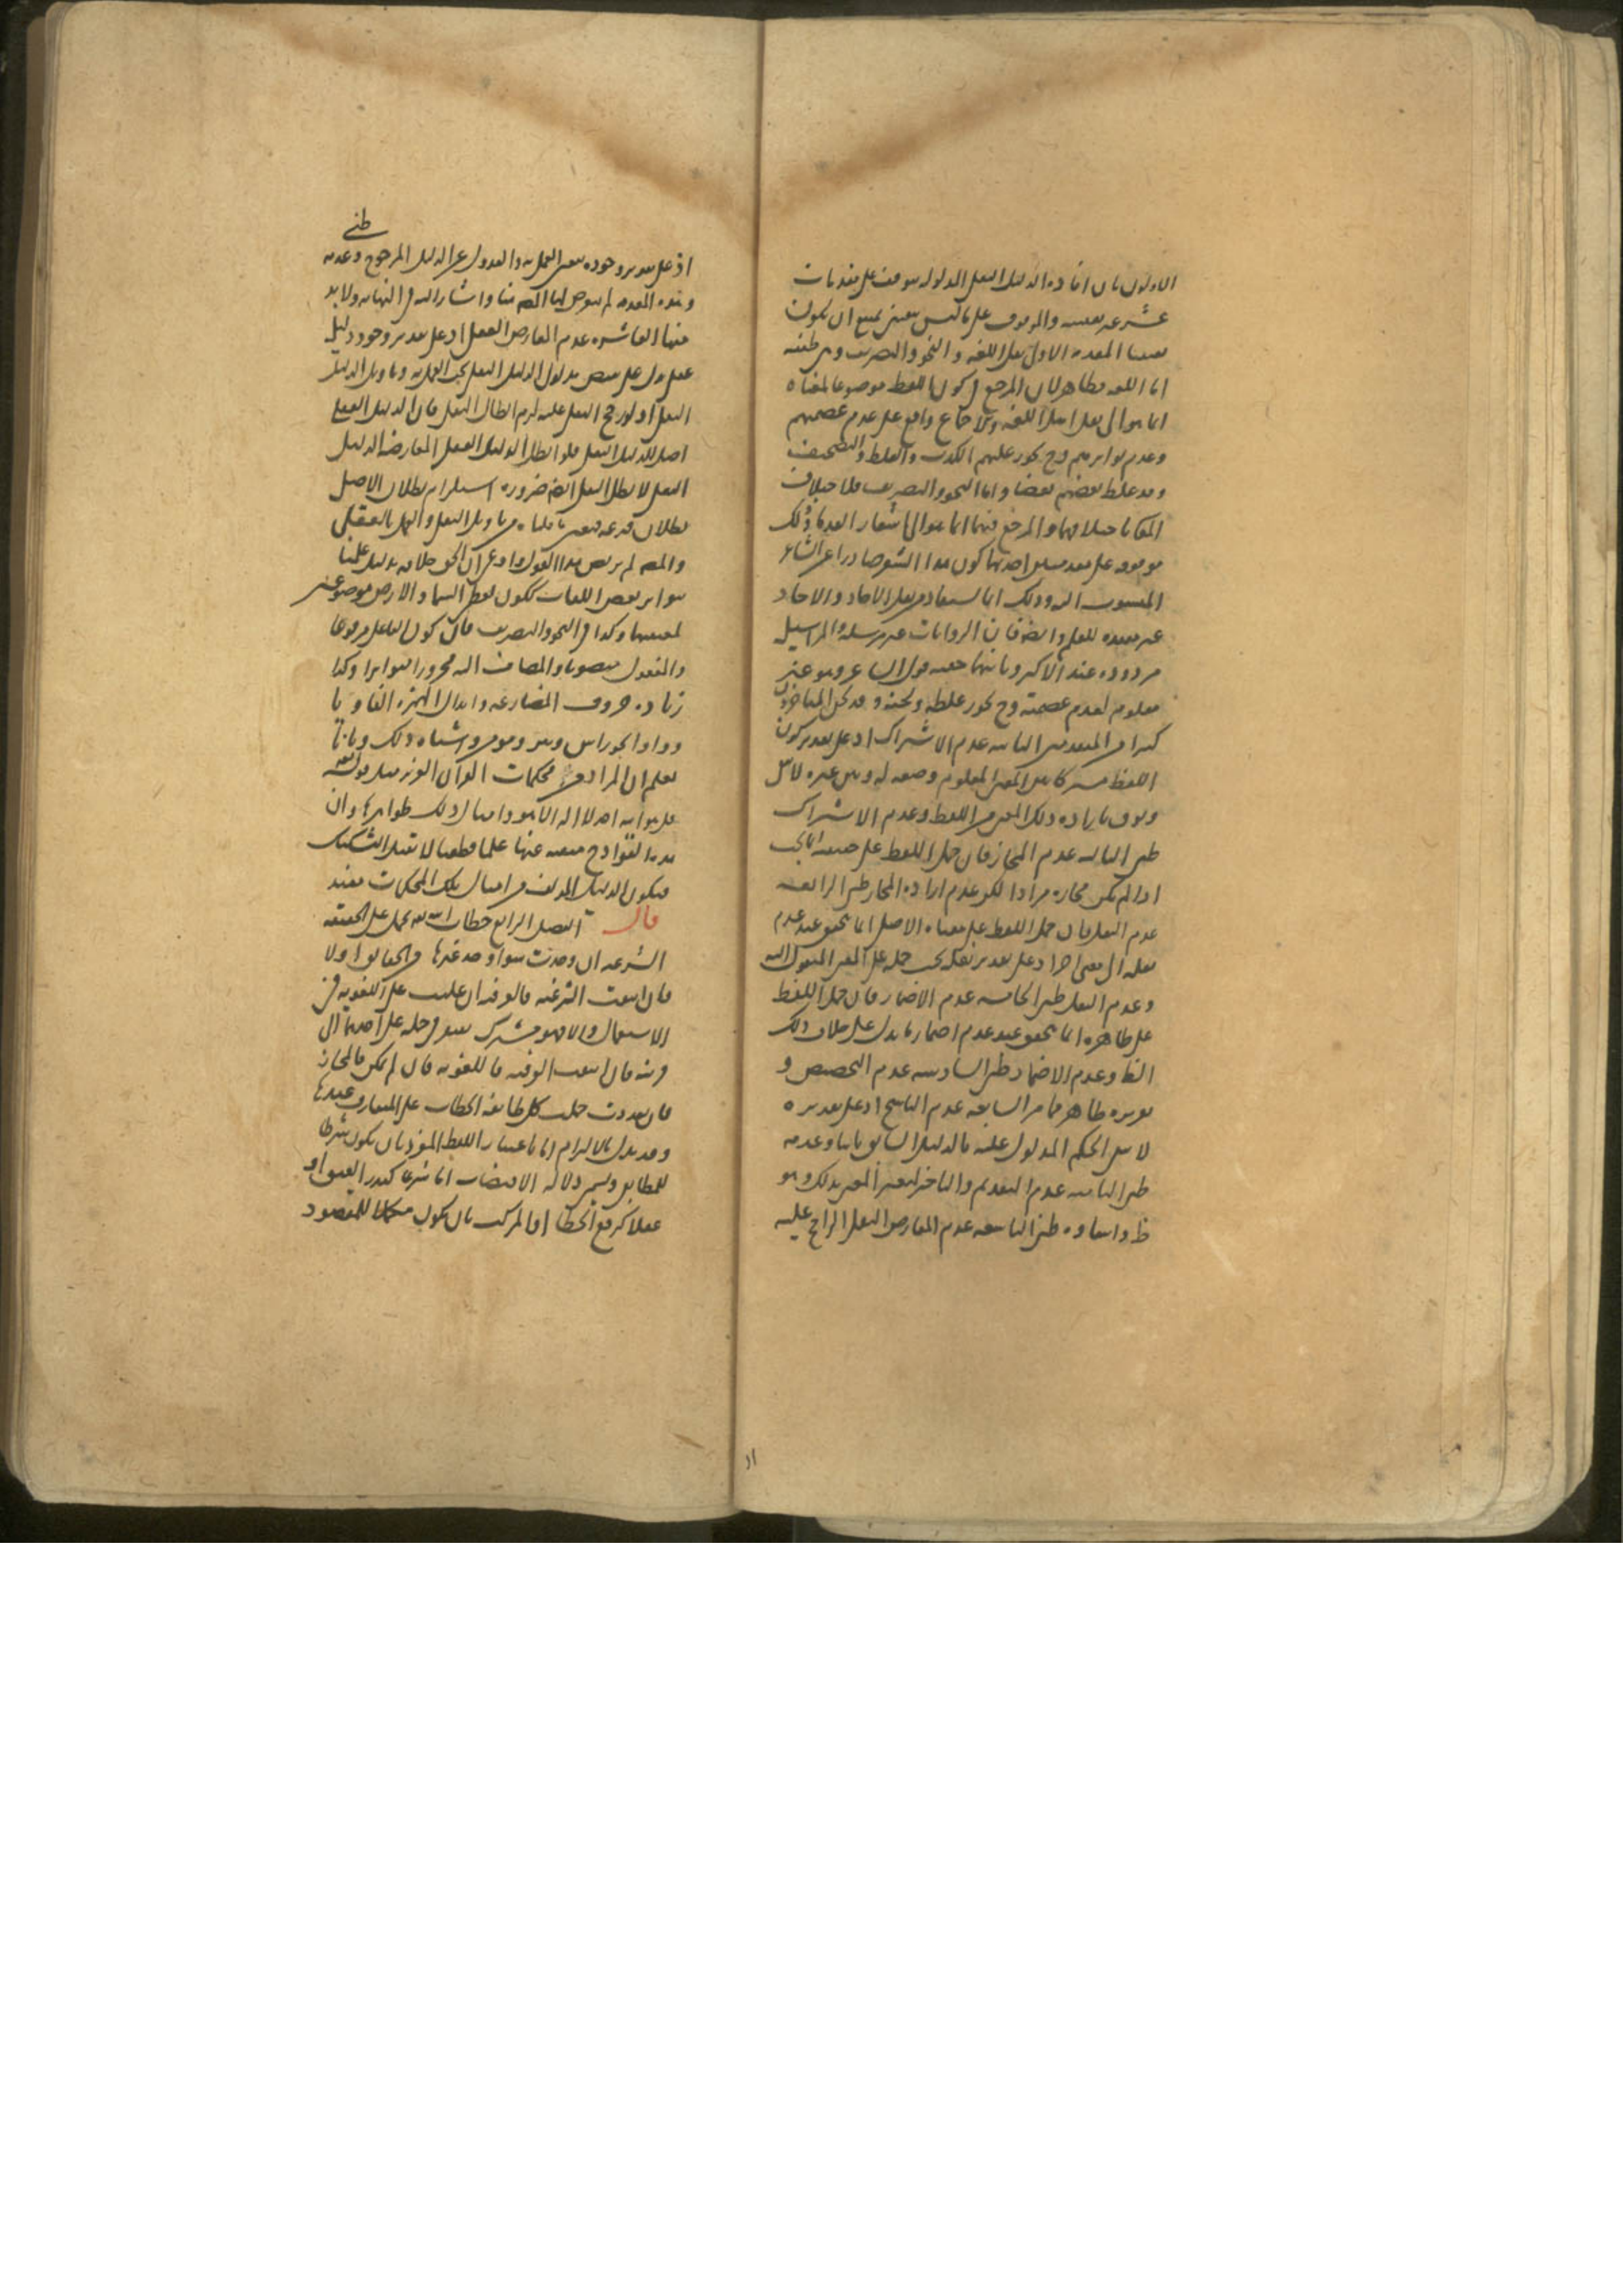 الاولون بان افادة الدليل النقلي المدلول يتوقف على مقدمات
عشر غير يقينيه والموقوف على ما ليس يقيني يمتنع ان يكون
يقينيا المقدمة الاولى نقل اللغه والنحو والتصريف وهي ظنيه
اما اللغه فظاهر لان المرجع في كون اللفظ موضوعا لمعناه
انما هو الى نقل اهل اللغه والاجماع واقع على عدم عصمتهم
وعدم تواترهم وح يجوز عليهم الكذب والغلط والتصحيف
وقد غلط بعضهم بعضا واما النحو والتصريف فلاختلاف
المعاني باختلافهما والمرجع فيهما انما هو الى اشعار العرب وذلك
موقوف على مقدمتين احديهما كون هذا الشعر صادرا عن الشاعر
المنسوب اليه وذلك انما يستفاد من نقل الاحاد والاحاد
غير مفيدة للعلم وايضا فان الروايات غير مرسله والمراسيل
مردوده عند الاكثر وثانيهما حجيه قول الشاعر وهو غير
معلوم لعدم عصمته وح يجوز غلطه ولحنه وقد لحن المتاخرون
كثيرا من المتقدمين الثانيه عدم الاشتراك اذ على تقدير كون
اللفظ مشتركا بين المعنى المعلوم وضعه له وبين غيره لا يبقى
وثوق بارادة ذلك المعنى من اللفظ وعدم الاشتراك
ظني الثالثه عدم المجاز فان حمل اللفظ على حقيقته انما يجب
اذا لم يكن مجازه مرادا لكن عدم ارادة المجاز ظني الرابعه
عدم النقل فان حمل اللفظ على معناه الاصلي انما يتحقق عند عدم
نقله الى معنى اخر اذ على تقدير نقله يجب حمله على المعنى المنقول اليه
وعدم النقل ظني الخامسه عدم الاضمار فان حمل اللفظ
على ظاهره انما يتحقق عند عدم اضمار ما يدل على خلاف ذلك
الظا وعدم الاضمار ظني السادسه عدم التخصيص و
تقريره ظاهر مما مر السابعه عدم الناسخ اذ على تقديره
لا يبقى الحكم المدلول عليه بالدليل السابق ثابتا وعدمه
ظني الثامنه عدم التقديم والتاخير لتغير المعنى بذلك وهو
ظ وانتفاوه ظني التاسعه عدم المعارض النقلي الراجح عليه
ظني
اذ على تقدير وجوده يتعين العمل به والعدول عن الدليل المرجوح وعدمه
وهذه المقدمه لم يتعرض لها المصه هنا واشار اليه في النهايه ولا بد
منها العاشره عدم المعارض العقلي اذ على تقدير وجود دليل
عقلي دل على نقيض مدلول الدليل النقلي يجب العمل به وتاويل الدليل
النقلي اذ لو رجح النقل عليه لزم ابطال النقل فان الدليل العقلي
اصل للدليل النقلي فلو ابطل الدليل العقلي المعارض الدليل
النقلي لابطل النقل ايضا ضرورة استلزام بطلان الاصل
بطلان فرعه فتعين ما قلناه من تاويل النقل والعمل بالعقل
والمصه لم يرتض هذا القول وادعى ان الحق خلافه بدليل علمنا
بتواتر بعض اللغات ككون لفظ السما والارض موضوعتين
لمعنييهما وكذا في النحو والتصريف فان كون الفاعل مرفوعا
والمفعول منصوبا والمضاف اليه مجرورا متواترا وكذا
زيادة حروف المضارعه وابدال الهمزه الفا ويا
وواوا نحو راس وبير ومومن واشباه ذلك وباننا
نعلم ان المراد من محكمات القران العزيز مثل قوله تعه
قل هو الله احد لا اله الا هو وامثال ذلك ظواهرها وان
هذه القوادح منتفيه عنها علما قطعيا لا تقبل التشكيك
فيكون الدليل المولف من امثال تلك المحكمات مفيد
قال الفصل الرابع خطاب الله تعه يحمل على الحقيقه
الشرعيه ان وجدت سوا وجد غيرها من الحقايق او لا
فان انتفت الشرعيه فالعرفيه ان غلبت على اللغويه في
الاستعمال والا فهو مشترك يفتقر في حمله على احدهما الى
قرينه فان انتفت العرفيه فاللغويه فان لم يكن فالمجاز
فان تعددت حملت كل طايفه الخطاب على المتعارف عندها
وقد يدل بالالتزام اما باعتبار اللفظ المفرد بان يكون شرطا
للمطابقي ويسمى دلالة الاقتضاء اما شرعا كتقدير العتق او
عقلا كرفع الخطا او المركب بان يكون مكملا للمقصود